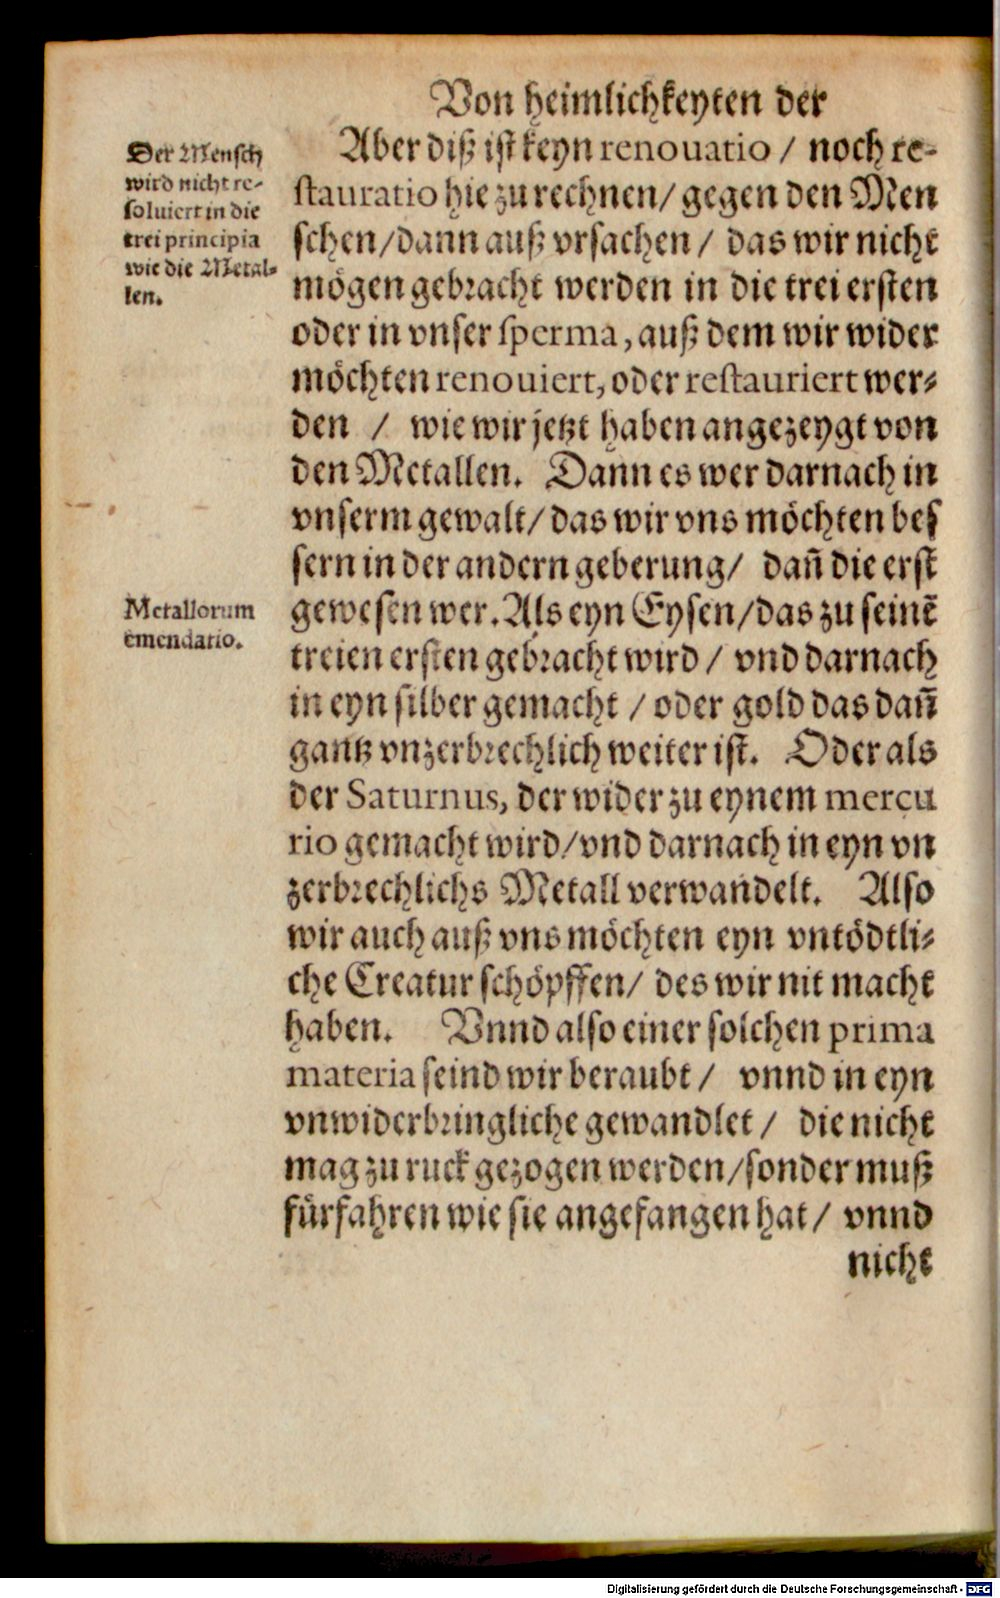 Von heimlichkeyten der
Der Mensch
wird nicht re-
soluiert in die
trei principia
wie die Metal-
len.
Aber diß ist keyn renouatio / noch re-
stauratio hie zu rechnen / gegen den Men
schen / dann auß vrsachen / das wir nicht
mögen gebracht werden in die trei ersten
oder in vnser sperma, auß dem wir wider
möchten renouiert, oder restauriert wer-
den / wie wir jetzt haben angezeygt von
den Metallen. Dann es wer darnach in
vnserm gewalt / das wir vns möchten bes
sern in der andern geberung / dañ die erst
Metallorum
emendatio.
gewesen wer. Als eyn Eysen / das zu seinē
treien ersten gebracht wird / vnd darnach
in eyn silber gemacht / oder gold das dañ
gantz vnzerbrechlich weiter ist. Oder als
der Saturnus, der wider zu eynem mercu
rio gemacht wird / vnd darnach in eyn vn
zerbrechlichs Metall verwandelt. Also
wir auch auß vns möchten eyn vntödtli-
che Creatur schöpffen / des wir nit macht
haben. Vnnd also einer solchen prima
materia seind wir beraubt / vnnd in eyn
vnwiderbringliche gewandlet / die nicht
mag zu ruck gezogen werden / sonder muß
fürfahren wie sie angefangen hat / vnnd
nicht
Digitalisierung gefördert durch die Deutsche Forschungsgemeinschaft - DFG